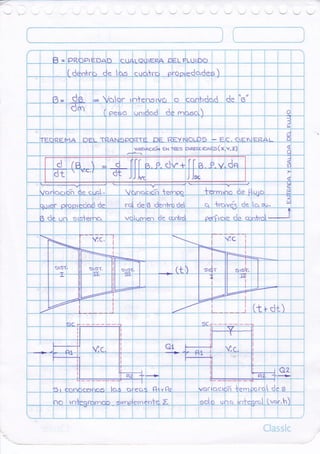 B = PROPIEDAD CUALQUIERA DEL FLUIDO
(dentro de las cuatro propiedades)
β = dB/dm = Valor intensivo o cantidad de "B"
(peso unidad de masa)
TEOREMA DEL TRANSPORTE DE REYNOLDS - EC. GENERAL
VARIACIÓN EN TRES DIMENSIONES (X,Y,Z)
d/dt (B V.C.) = d/dt ∭VC β.ρ.dV + ∬SC β.ρ.V.dA
Variación de cual-
quier propiedad de
B de un sistema
Variación tempo
ral de B dentro del
volumen de control
término de flujo
a través de la su-
perficie de control
ENTRADA Y SALIDA DEL FLUJO
V.C.
SIST. I
SIST. II
SIST. III
(t)
V.C
SIST I
SIST. III
(t+dt)
SC
V.C.
A1
A2
Si conocemos las áreas A1 y A2
no integramos simplemente Σ
SC
V
Q1
A1
V.C.
A2
Q2
variación temporal de B
solo una integral (var.h)
Classic